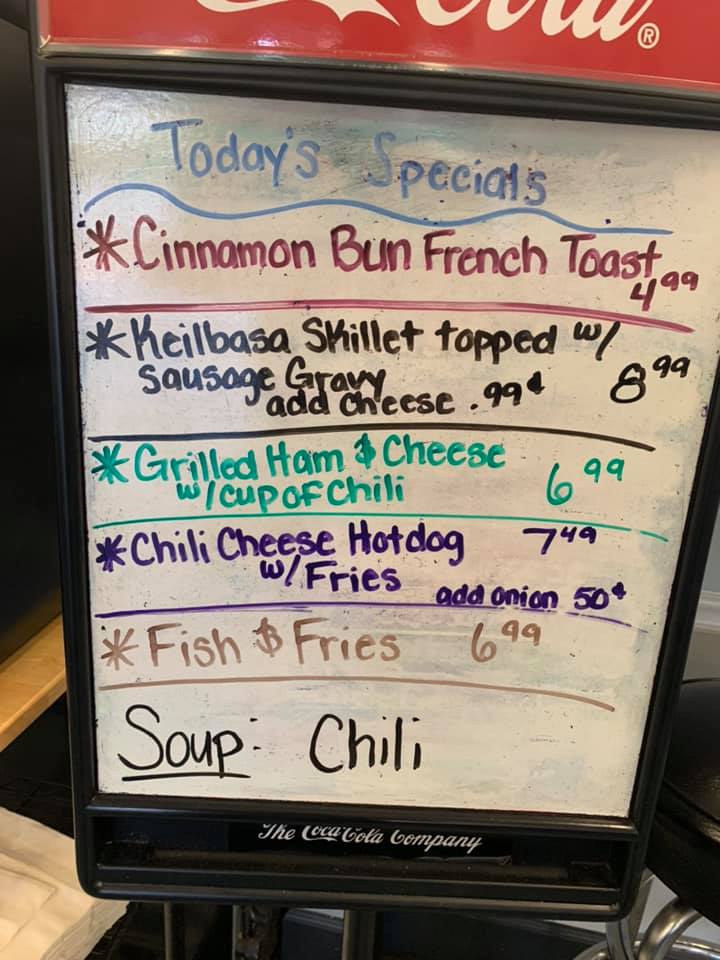 Cola®
Today's Specials
*Cinnamon Bun French Toast
4.99
*Keilbasa Skillet topped w/
Sausage Gravy 8.99
add cheese .99¢
*Grilled Ham & Cheese 6.99
w/cup of Chili
*Chili Cheese Hotdog 7.49
w/Fries add onion 50¢
*Fish & Fries 6.99
Soup: Chili
The Coca-Cola Company